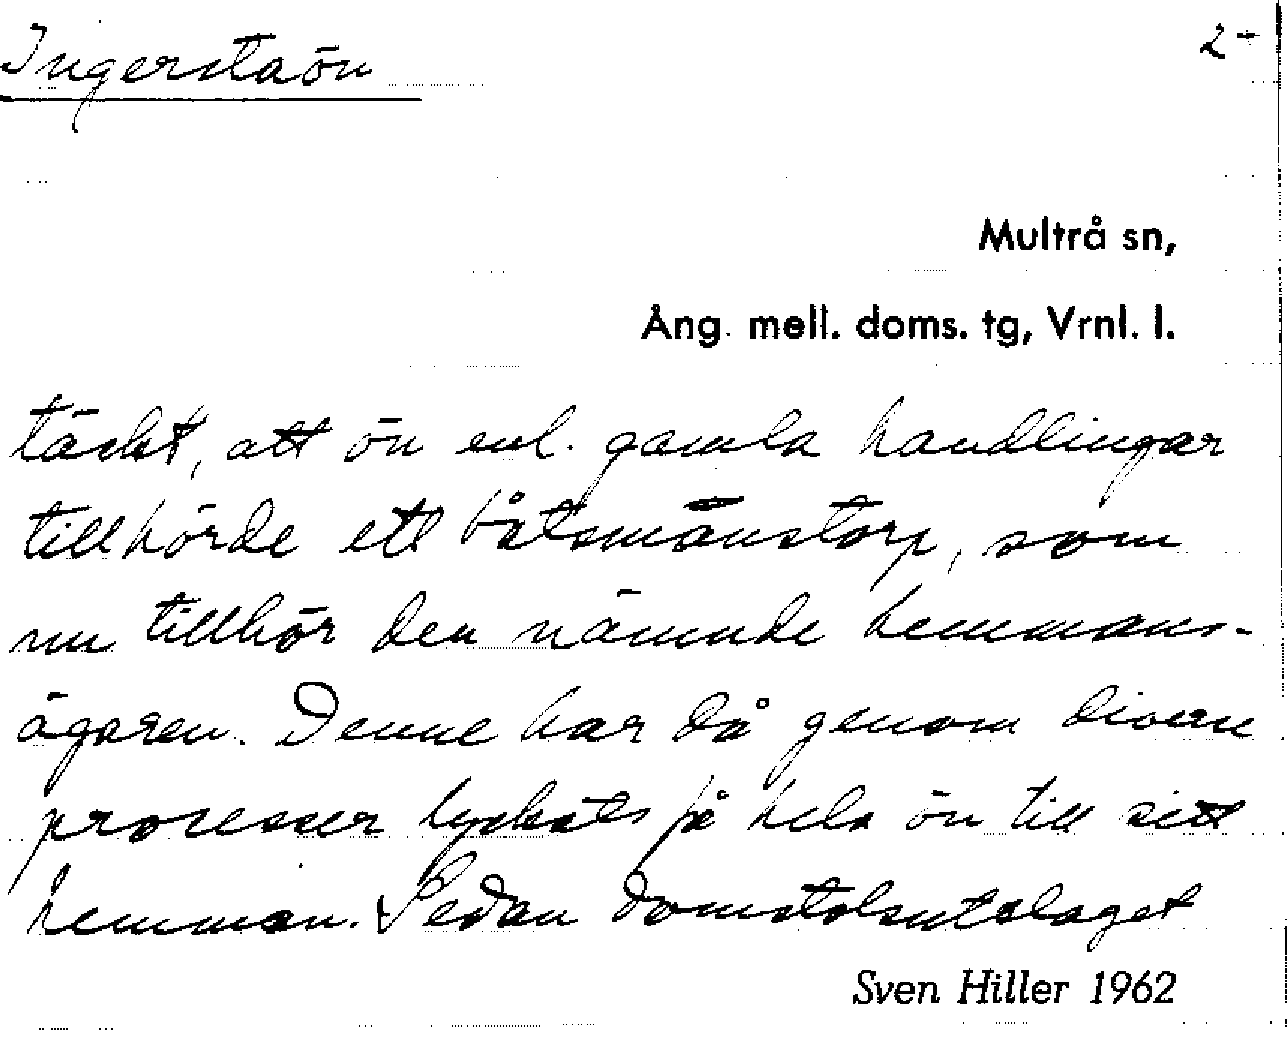 Ingerstaön
2-
Multrå sn,
Ång. mell. doms. tg, Vrnl. l.
täckt, att ön enl. gamla handlingar
tillhörde ett båtsmanstorp, som
nu tillhör den nämnde hemmans-
ägaren. Denne har då genom diverse
processer lyckats få hela ön till sitt
hemman. Sedan domstolsutslaget
Sven Hiller 1962